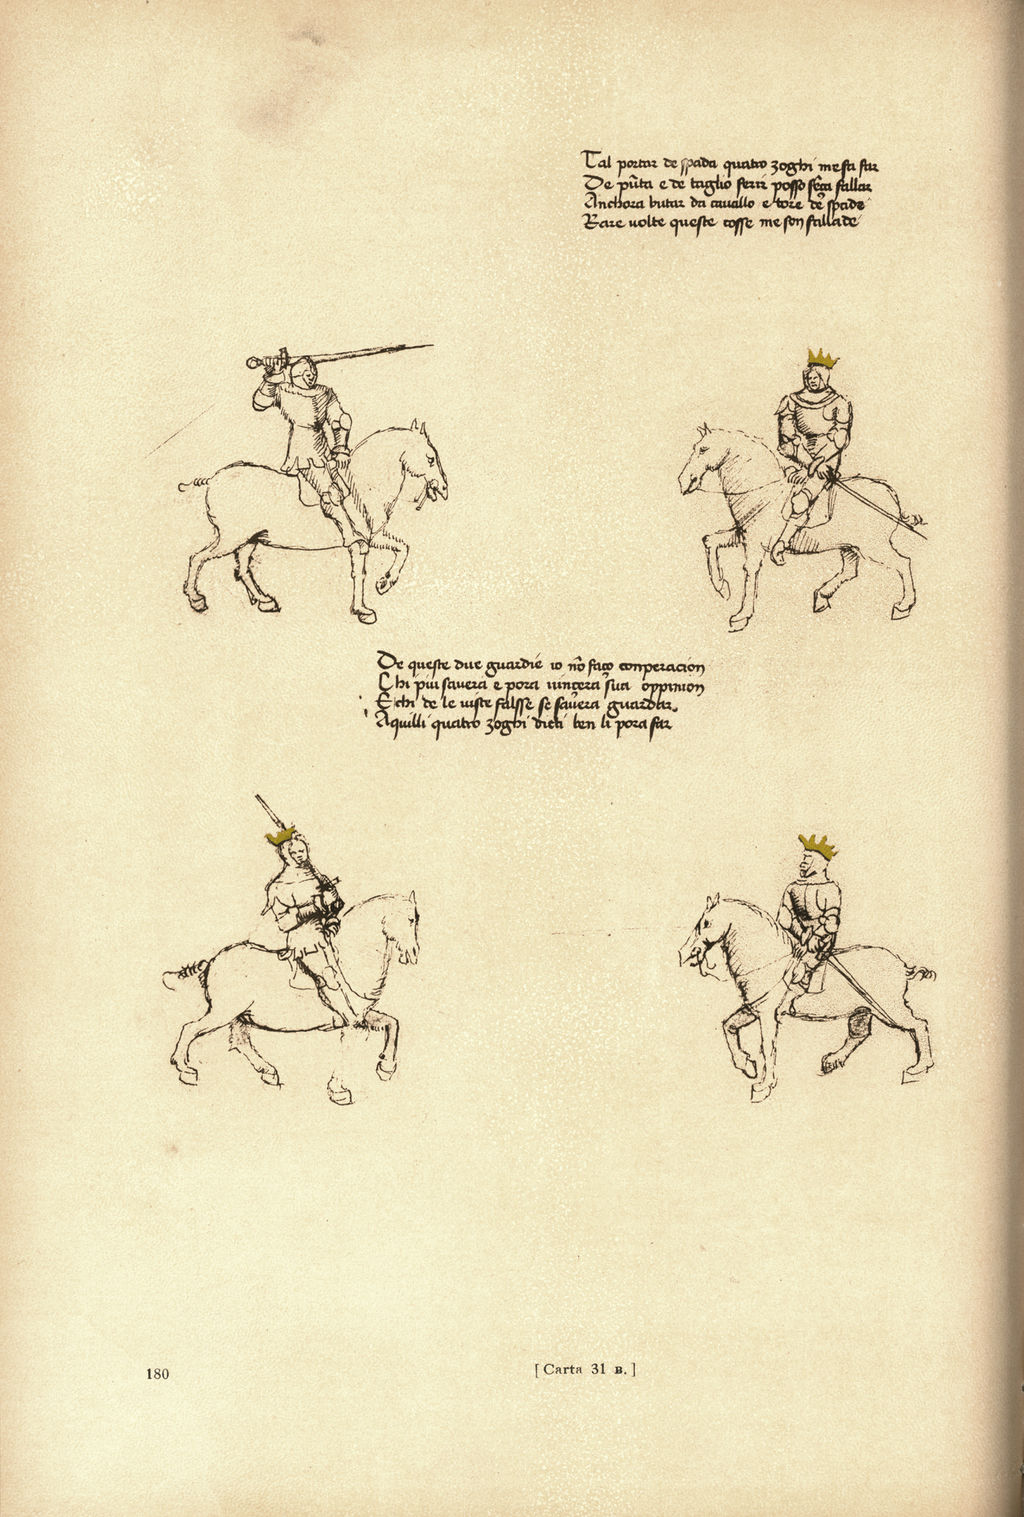 Tal portar de spada quatro zoghi me fa far
De pūta e de taglio ferir posso sēça fallar
Anchora butar da cavallo e tore de spade
Rare volte queste cosse me son fallade
De queste due guardie io nō faço conperacion
Chi piu savera e pora vincera sua oppinion
E chi de le viste falsse se savera guardar
Aquilli quatro zoghi dicti ben li pora far
180
[Carta 31 B.]